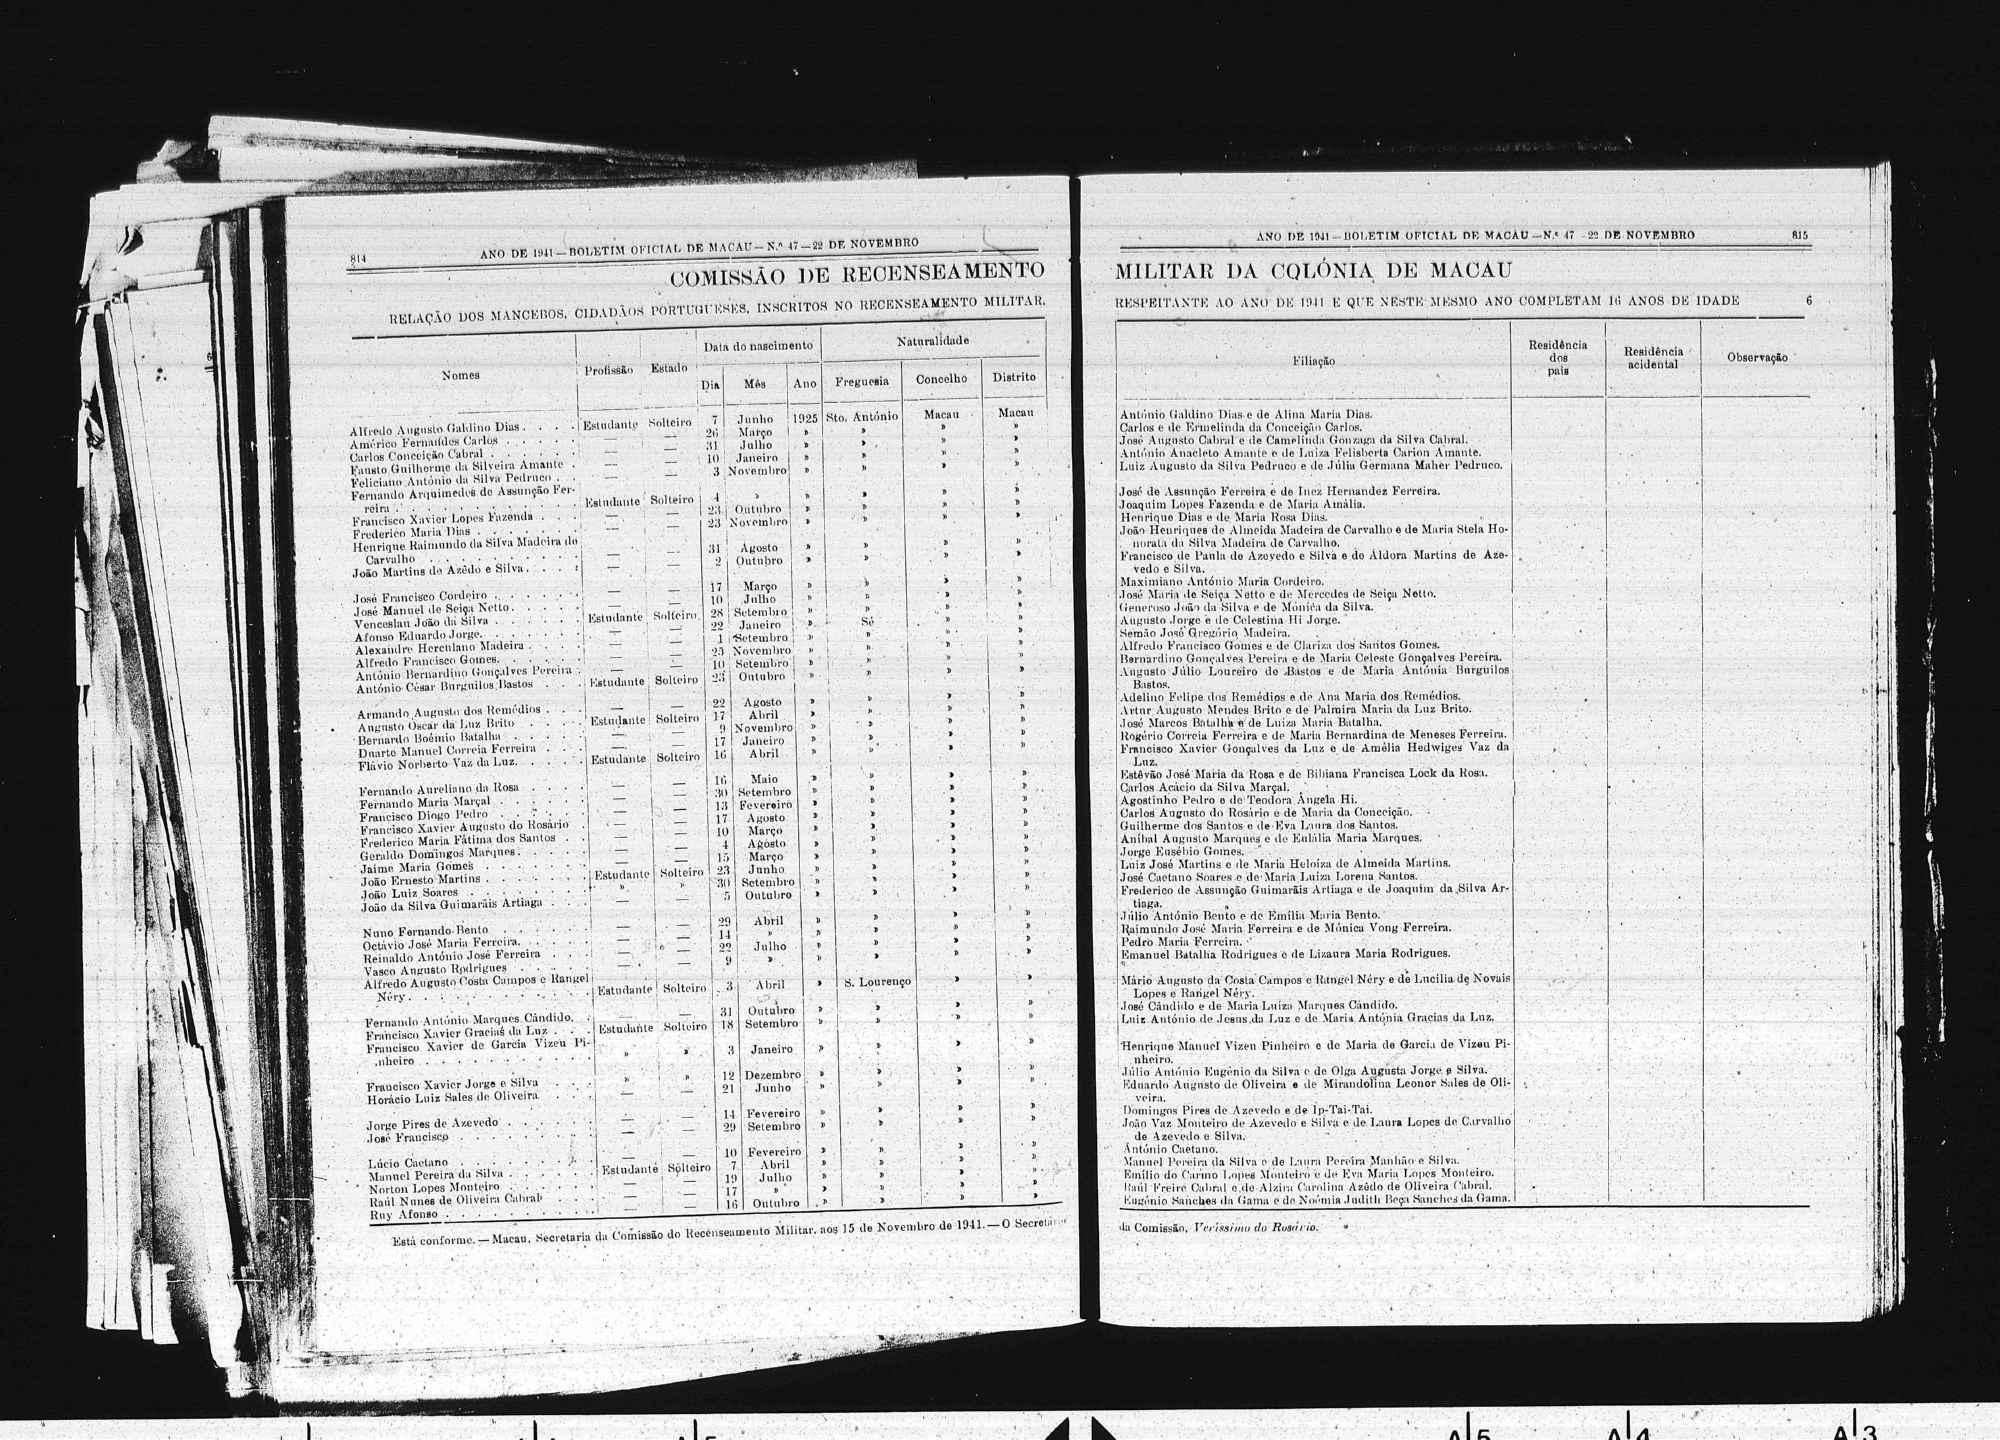 814 ANO DE 1941—BOLETIM OFICIAL DE MACAU—N.º 47—22 DE NOVEMBRO
COMISSÃO DE RECENSEAMENTO
RELAÇÃO DOS MANCEBOS, CIDADÃOS PORTUGUESES, INSCRITOS NO RECENSEAMENTO MILITAR,
Nomes Profissão Estado Data do nascimento Naturalidade
Dia Mês Ano Freguesia Concelho Distrito
Alfredo Augusto Galdino Dias. . . . Estudante Solteiro 7 Junho 1925 Sto. António Macau Macau
Américo Fernandes Carlos . . . . . — — 26 Março » » » »
Carlos Conceição Cabral . . . . . . — — 31 Julho » » » »
Fausto Guilherme da Silveira Amante . — — 10 Janeiro » » » »
Feliciano António da Silva Pedruco . . — — 3 Novembro » » » »
Fernando Arquimedes de Assunção Fer-
reira . . . . . . . . . . . Estudante Solteiro 4 » » » » »
Francisco Xavier Lopes Fazenda . . . — — 23 Outubro » » » »
Frederico Maria Dias . . . . . . . — — 23 Novembro » » » »
Henrique Raimundo da Silva Madeira de
Carvalho . . . . . . . . . — — 31 Agosto » » » »
João Martins de Azêdo e Silva. . . . — — 2 Outubro » » » »
José Francisco Cordeiro . . . . . . — — 17 Março » » » »
José Manuel de Seiça Netto. . . . . — — 10 Julho » » » »
Venceslau João da Silva . . . . . . Estudante Solteiro 28 Setembro » » » »
Afonso Eduardo Jorge. . . . . . . — — 22 Janeiro » Sé » »
Alexandre Herculano Madeira . . . . — — 1 Setembro » » » »
Alfredo Francisco Gomes. . . . . . — — 25 Novembro » » » »
António Bernardino Gonçalves Pereira . — — 10 Setembro » » » »
António César Burguilos Bastos . . . Estudante Solteiro 23 Outubro » » » »
Armando Augusto dos Remédios . . . — — 22 Agosto » » » »
Augusto Oscar da Luz Brito . . . . Estudante Solteiro 17 Abril » » » »
Bernardo Boémio Batalha . . . . . — — 9 Novembro » » » »
Duarte Manuel Correia Ferreira . . . — — 17 Janeiro » » » »
Flávio Norberto Vaz da Luz. . . . . Estudante Solteiro 16 Abril » » » »
Fernando Aureliano da Rosa . . . . — — 16 Maio » » » »
Fernando Maria Marçal . . . . . . — — 30 Setembro » » » »
Francisco Diogo Pedro . . . . . . — — 13 Fevereiro » » » »
Francisco Xavier Augusto do Rosário . — — 17 Agosto » » » »
Frederico Maria Fátima dos Santos . . — — 10 Março » » » »
Geraldo Domingos Marques. . . . . — — 4 Agôsto » » » »
Jaime Maria Gomes . . . . . . . — — 15 Março » » » »
João Ernesto Martins . . . . . . . Estudante Solteiro 23 Junho » » » »
João Luiz Soares . . . . . . . . » » 30 Setembro » » » »
João da Silva Guimarãis Artiaga . . . — — 5 Outubro » » » »
Nuno Fernando Bento . . . . . . — — 29 Abril » » » »
Octávio José Maria Ferreira. . . . . — — 14 » » » » »
Reinaldo António José Ferreira . . . — — 22 Julho » » » »
Vasco Augusto Rodrigues . . . . . — — 9 » » » » »
Alfredo Augusto Costa Campos e Rangel
Néry. . . . . . . . . . . Estudante Solteiro 3 Abril » S. Lourenço » »
Fernando António Marques Cândido. . — — 31 Outubro » » » »
Francisco Xavier Gracias da Luz . . . Estudante Solteiro 18 Setembro » » » »
Francisco Xavier de Garcia Vizeu Pi-
nheiro . . . . . . . . . . » » 3 Janeiro » » » »
Francisco Xavier Jorge e Silva . . . » » 12 Dezembro » » » »
Horácio Luiz Sales de Oliveira . . . — — 21 Junho » » » »
Jorge Pires de Azevedo . . . . . . — — 14 Fevereiro » » » »
José Francisco . . . . . . . . . — — 29 Setembro » » » »
Lúcio Caetano . . . . . . . . . — — 10 Fevereiro » » » »
Manuel Pereira da Silva . . . . . . Estudante Solteiro 7 Abril » » » »
Norton Lopes Monteiro . . . . . . — — 19 Julho » » » »
Raúl Nunes de Oliveira Cabral . . . — — 17 » » » » »
Ruy Afonso . . . . . . . . . . — — 16 Outubro » » » »
Está conforme.—Macau, Secretaria da Comissão do Recenseamento Militar, aos 15 de Novembro de 1941.—O Secretário
ANO DE 1941—BOLETIM OFICIAL DE MACAU—N.º 47—22 DE NOVEMBRO 815
MILITAR DA COLÓNIA DE MACAU
RESPEITANTE AO ANO DE 1941 E QUE NESTE MESMO ANO COMPLETAM 16 ANOS DE IDADE 6
Filiação Residência dos pais Residência acidental Observação
António Galdino Dias e de Alina Maria Dias.
Carlos e de Ermelinda da Conceição Carlos.
José Augusto Cabral e de Camelinda Gonzaga da Silva Cabral.
António Anacleto Amante e de Luiza Felisberta Carion Amante.
Luiz Augusto da Silva Pedruco e de Júlia Germana Maher Pedruco.
José de Assunção Ferreira e de Inez Hernandez Ferreira.
Joaquim Lopes Fazenda e de Maria Amália.
Henrique Dias e de Maria Rosa Dias.
João Henriques de Almeida Madeira de Carvalho e de Maria Stela Ho-
norata da Silva Madeira de Carvalho.
Francisco de Paula de Azevedo e Silva e de Áldora Martins de Aze-
vedo e Silva.
Maximiano António Maria Cordeiro.
José Maria de Seiça Netto e de Mercedes de Seiça Netto.
Generoso João da Silva e de Mónica da Silva.
Augusto Jorge e de Celestina Hi Jorge.
Semão José Gregório Madeira.
Alfredo Francisco Gomes e de Clariza dos Santos Gomes.
Bernardino Gonçalves Pereira e de Maria Celeste Gonçalves Pereira.
Augusto Júlio Loureiro de Bastos e de Maria Antónia Burguilos
Bastos.
Adelino Felipe dos Remédios e de Ana Maria dos Remédios.
Artur Augusto Mendes Brito e de Palmira Maria da Luz Brito.
José Marcos Batalha e de Luiza Maria Batalha.
Rogério Correia Ferreira e de Maria Bernardina de Meneses Ferreira.
Francisco Xavier Gonçalves da Luz e de Amélia Hedwiges Vaz da
Luz.
Estêvão José Maria da Rosa e de Bibiana Francisca Lock da Rosa.
Carlos Acácio da Silva Marçal.
Agostinho Pedro e de Teodora Ângela Hi.
Carlos Augusto do Rosário e de Maria da Conceição.
Guilherme dos Santos e de Eva Laura dos Santos.
Aníbal Augusto Marques e de Eulália Maria Marques.
Jorge Eusébio Gomes.
Luiz José Martins e de Maria Heloíza de Almeida Martins.
José Caetano Soares e de Maria Luiza Lorena Santos.
Frederico de Assunção Guimarãis Artiaga e de Joaquim da Silva Ar-
tiaga.
Júlio António Bento e de Emília Maria Bento.
Raimundo José Maria Ferreira e de Mónica Vong Ferreira.
Pedro Maria Ferreira.
Emanuel Batalha Rodrigues e de Lizaura Maria Rodrigues.
Mário Augusto da Costa Campos e Rangel Néry e de Lucília de Novais
Lopes e Rangel Néry.
José Cândido e de Maria Luiza Marques Cândido.
Luiz António de Jesus da Luz e de Maria Antónia Gracias da Luz.
Henrique Manuel Vizeu Pinheiro e de Maria de Garcia de Vizeu Pi-
nheiro.
Júlio António Eugénio da Silva e de Olga Augusta Jorge e Silva.
Eduardo Augusto de Oliveira e de Mirandolina Leonor Sales de Oli-
veira.
Domingos Pires de Azevedo e de Ip-Tai-Tai.
João Vaz Monteiro de Azevedo e Silva e de Laura Lopes de Carvalho
de Azevedo e Silva.
António Caetano.
Manuel Pereira da Silva e de Laura Pereira Manhão e Silva.
Emílio do Carmo Lopes Monteiro e de Eva Maria Lopes Monteiro.
Raúl Freire Cabral e de Alzira Carolina Azêdo de Oliveira Cabral.
Eugénio Sanches da Gama e de Noémia Judith Beça Sanches da Gama.
da Comissão, Veríssimo do Rosário.
A 5 A 4 A 3